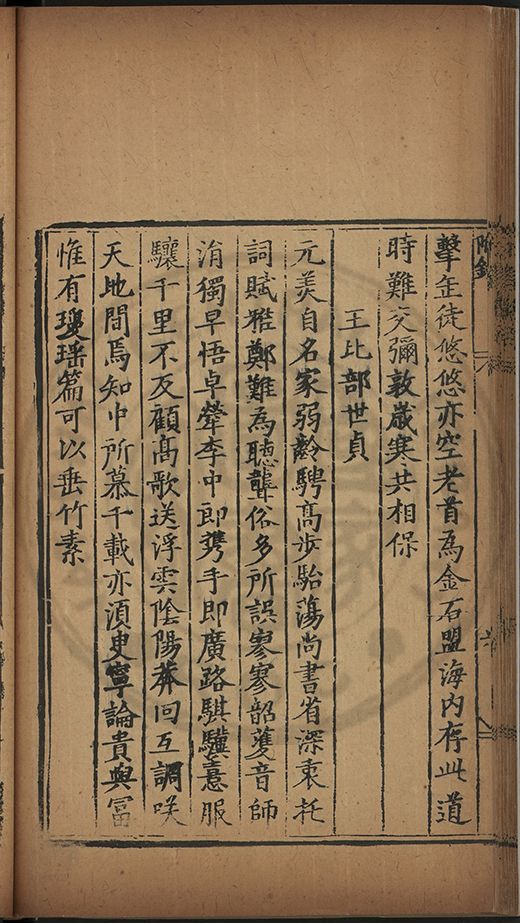 附錄
擊缶徒悠悠亦空老首為金石盟海内存此道
時難交彌敦歲寒共相保
王比部世貞
元美自名家弱齡騁高步駘蕩尚書省深衷托
詞賦雅鄭難為聽聾俗多所誤寥寥韶濩音師
涓獨早悟卓犖李中郎攜手即廣路騏驥驀服
驤千里不反顧高歌送浮雲陰陽莽回互調笑
天地間焉知中所慕千載亦須臾寧論貴與富
惟有瓊瑤篇可以垂竹素